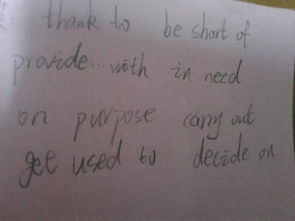 thank to be short of
provide...with in need
on purpose carry out
get used to decide on